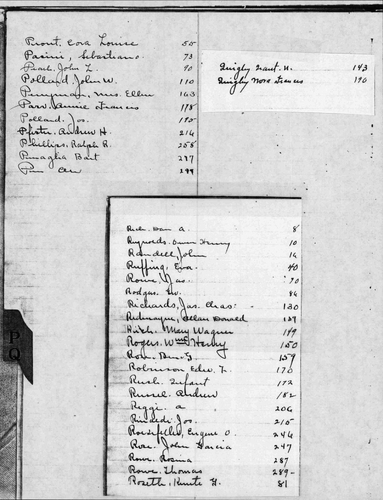 Prout, Cora Louise 50
Pasini, Sebastiano. 73
Poach. John Z. 90
Pollard, John W. 110
Penyman, Mrs. Ellen 163
Parr. Annie Frances 178
Pollard. Jos.
Pfister. Andrew H. 214
Phillips, Ralph R. 258
Bart 297
299
Quigley Infant. H. 143
Quigley Nora Frances 190
P
Q
Rich. Dan A. 8
Reynolds. Owen Henry 10
Randell, John 14
Ruffing, Eva. 40
Rowe, Jas. 70
Rodgers. 84
Richards, Jas. Chas. 130
Redmayne, Allan Donald 137
Mary Wagner 149
Rogers. Wm Henry 150
159
Robinson Edw. F. 170
Rush. Infant 172
Russel. Andrew 182
Reggi. A 206
Rinardi Jos. 215
Rosenfeller, Eugene O. 244
Rose. John Garcia 247
Rowe. Rosina 287
Rowe. Thomas 289
Rosetti, 81